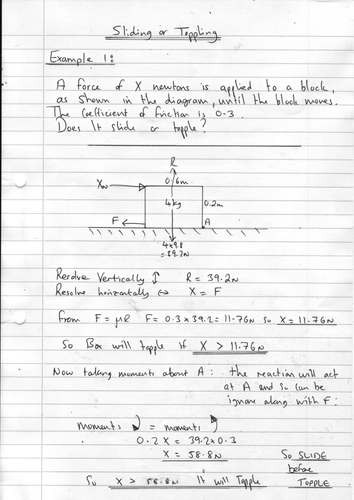 Sliding or Toppling
Example 1:
A force of X newtons is applied to a block,
as shown in the diagram, until the block moves.
The coefficient of friction is 0.3.
Does it slide or topple?
R
0.6m
XN
4kg
0.2m
F
A
4x9.8
=39.2N
Resolve Vertically ↕ R = 39.2N
Resolve horizontally ↔ X = F
From F = μR F = 0.3 x 39.2 = 11.76N So X = 11.76N
So Box will topple if X > 11.76N
Now taking moments about A: the reaction will act
at A and so can be
ignore along with F:
moments ↻ = moments ↺
0.2 X = 39.2 x 0.3
X = 58.8N
So SLIDE
before
TOPPLE
So X > 58.8N It will Topple